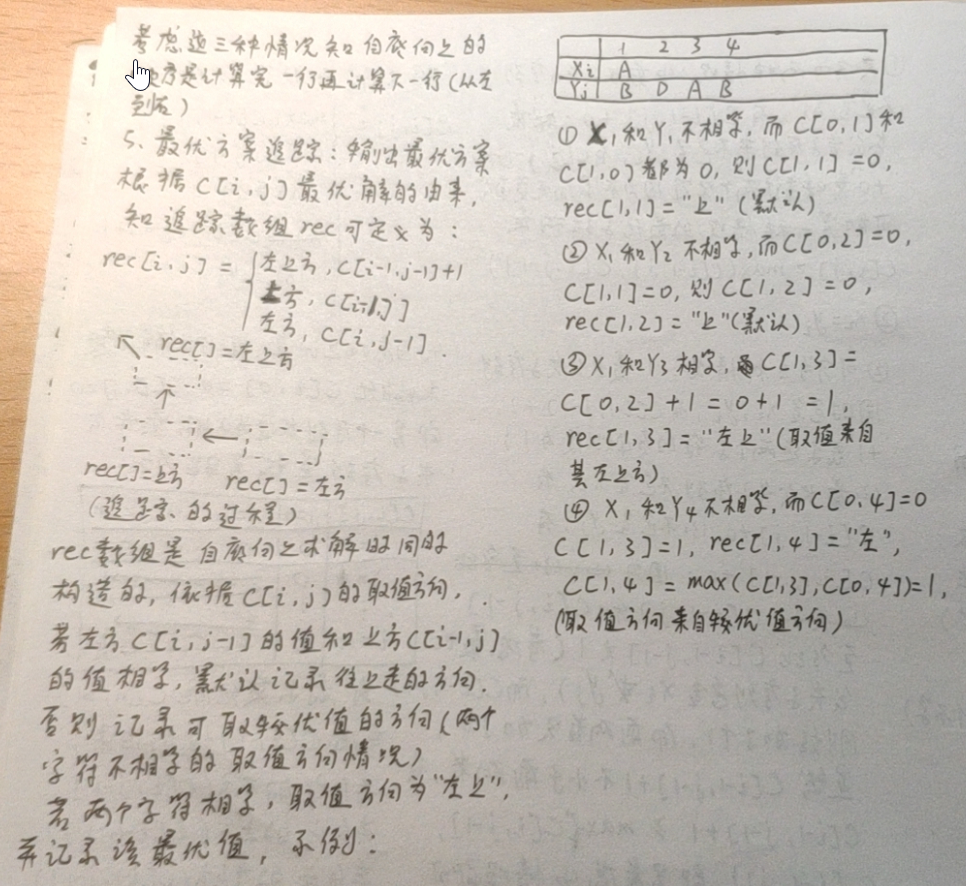 考虑这三种情况知自底向上的
顺序是计算完一行再计算下一行(从左
到右)
5、最优方案追踪:输出最优方案
根据C[i,j]最优解的由来,
知追踪数组rec可定义为:
rec[i,j] = { 左上方, C[i-1,j-1]+1
上方, C[i-1,j]
左方, C[i,j-1].
rec[]=左上方
rec[]=上方 rec[]=左方
(追踪的过程)
rec数组是自底向上求解时同时
构造的,依据C[i,j]的取值方向,
若左方C[i,j-1]的值和上方C[i-1,j]
的值相等,默认记录往上走的方向.
否则记录可取较优值的方向(两个
字符不相等的取值方向情况)
若两个字符相等,取值方向为"左上",
并记录该最优值,示例:
1 2 3 4
Xi A
Yj B D A B
① X₁和Y₁不相等,而C[0,1]和
C[1,0]都为0,则C[1,1]=0,
rec[1,1]="上"(默认)
② X₁和Y₂不相等,而C[0,2]=0,
C[1,1]=0,则C[1,2]=0,
rec[1,2]="上"(默认)
③ X₁和Y₃相等,C[1,3]=
C[0,2]+1=0+1=1,
rec[1,3]="左上"(取值来自
其左上方)
④ X₁和Y₄不相等,而C[0,4]=0
C[1,3]=1,rec[1,4]="左",
C[1,4]=max(C[1,3],C[0,4])=1,
(取值方向来自较优值方向)